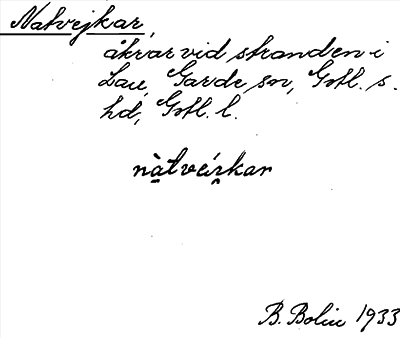 Natvejkar,
åkrar vid stranden i
Lau, Garde sn, Gotl. s.
hd, Gotl. l.
nàtveírkar
B. Bolin 1933